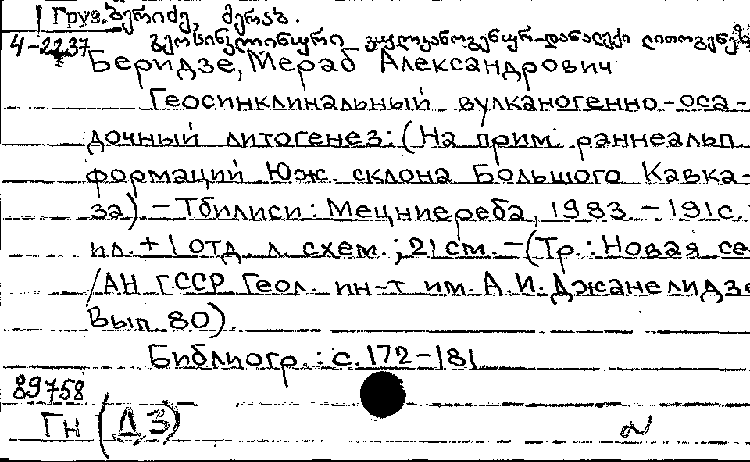 Груз. ბერიძე, მერაბ.
4-2237 გეოსინკლინური ვულკანოგენურ-დანალექი ლითოგენეზი
Беридзе, Мераб Александрович
Геосинклинальный вулканогенно-оса-
дочный литогенез: (На прим. раннеальп.
формаций Юж. склона Большого Кавка-
за). - Тбилиси: Мецниереба, 1983. - 191 с.:
ил. + 1 отд. л. схем.; 21 см. - (Тр.: Новая се
/АН ГССР Геол. ин-т им. А.И. Джанелидзе
Вып. 80).
Библиогр.: с. 172-181
89758
Гн (ДЗ)